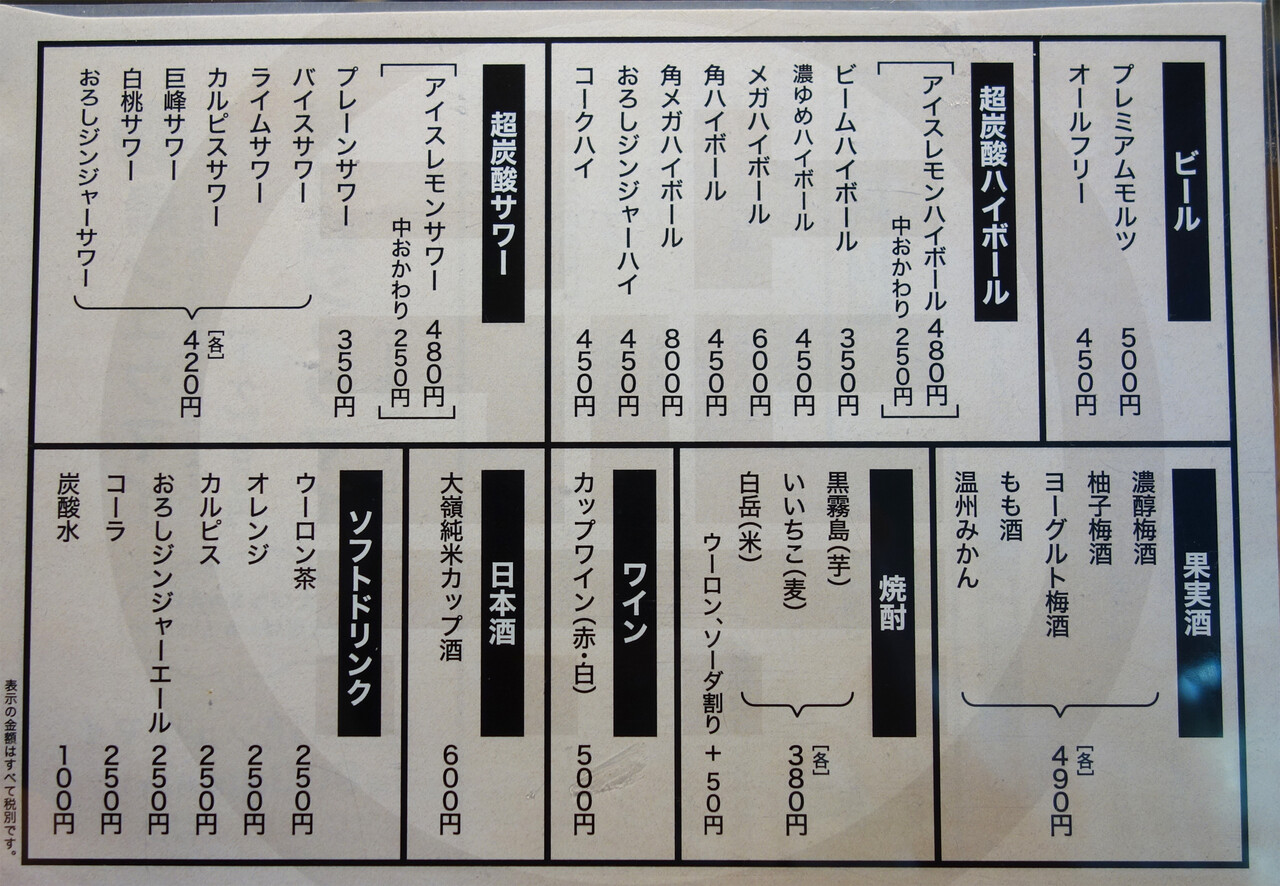 ビール
プレミアムモルツ 500円
オールフリー 450円
超炭酸ハイボール
アイスレモンハイボール 480円
中おかわり 250円
ビームハイボール 350円
濃ゆめハイボール 450円
メガハイボール 600円
角ハイボール 450円
角メガハイボール 800円
おろしジンジャーハイ 450円
コークハイ 450円
超炭酸サワー
アイスレモンサワー 480円
中おかわり 250円
プレーンサワー 350円
バイスサワー
ライムサワー
カルピスサワー
巨峰サワー
白桃サワー
おろしジンジャーサワー
[各]
420円
果実酒
濃醇梅酒
柚子梅酒
ヨーグルト梅酒
もも酒
温州みかん
[各]
490円
焼酎
黒霧島(芋)
いいちこ(麦)
白岳(米)
[各]
380円
ウーロン、ソーダ割り + 50円
ワイン
カップワイン(赤・白) 500円
日本酒
大嶺純米カップ酒 600円
ソフトドリンク
ウーロン茶 250円
オレンジ 250円
カルピス 250円
おろしジンジャーエール 250円
コーラ 250円
炭酸水 100円
表示の金額はすべて税別です。